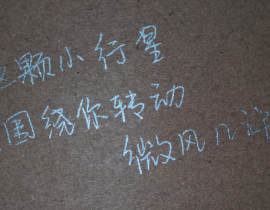 颗小行星
围绕你转动
微风几